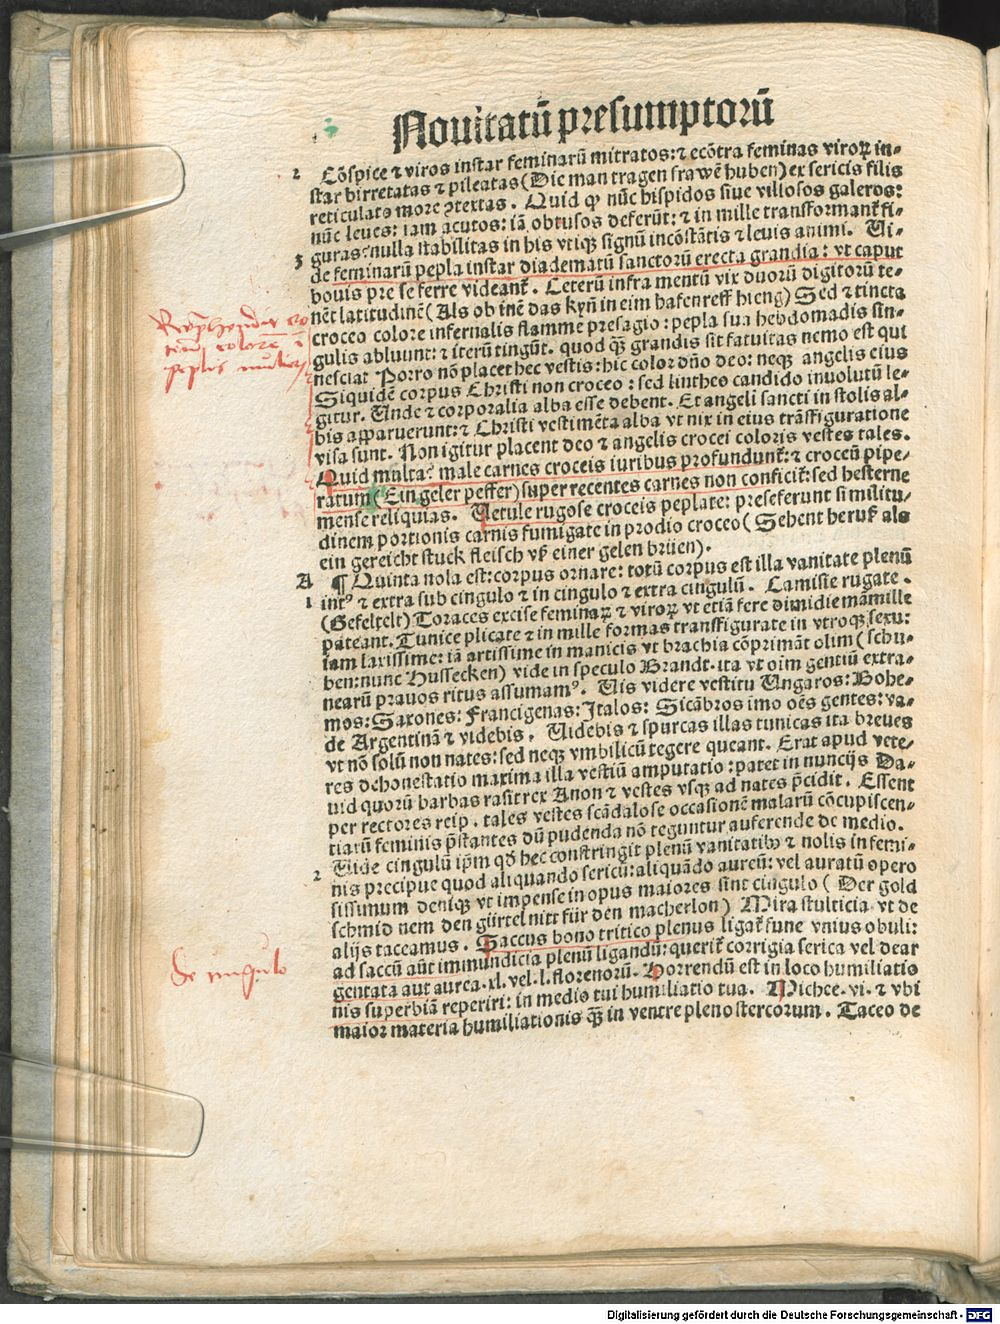 Novitatū presumptorū
2 Cōspice ⁊ viros instar feminarū mitratos: ⁊ ecōtra feminas viroꝝ in-
star birretatas ⁊ pileatas (Die man tragen frawē huben) ex sericis filis
reticulato more ꝯtextas. Quid ꝙ nūc hispidos siue villosos galeros:
nūc leues: iam acutos: iā obtusos deferūt: ⁊ in mille transformant̄ fi-
guras: nulla stabilitas in his vtiqꝫ signū incōstātis ⁊ leuis animi. Vi-
3 de feminarū pepla instar diadematū sanctorū erecta grandia: vt caput
bouis pre se ferre videant̄. Ceterū infra mentū vix duorū digitorū te-
nēt latitudinē (Als ob inē das kyn̄ in eim hafenreff hieng) Sed ⁊ tincta
croceo colore infernalis flamme presagio: pepla sua hebdomadis sin-
gulis abluunt: ⁊ iterū tingūt. quod qꝫ grandis sit fatuitas nemo est qui
nesciat Porro nō placet hec vestis: hic color dn̄o deo: neqꝫ angelis eius
Siquidē corpus Christi non croceo: sed lintheo candido inuolutū le-
gitur. Unde ⁊ corporalia alba esse debent. Et angeli sancti in stolis al-
bis apparuerunt: ⁊ Christi vestimēta alba vt nix in eius trāsfiguratione
visa sunt. Non igitur placent deo ⁊ angelis crocei coloris vestes tales.
Quid multa? male carnes croceis iuribus profundunt̄: ⁊ croceū pipe-
ratum (Ein geler pfeffer) super recentes carnes non conficit̄: sed hesterne
mense reliquias. Vetule rugose croceis peplate: preseferunt similitu-
dinem portionis carnis fumigate in prodio croceo (Sehent heruß als
ein gereicht stuck fleisch vß einer gelen brüen).
A ¶ Quinta nola est: corpus ornare: totū corpus est illa vanitate plenū
1 intꝰ ⁊ extra sub cingulo ⁊ in cingulo ⁊ extra cingulū. Camisie rugate.
(Gefeltelt) Toraces excise feminaꝝ ⁊ viroꝝ vt etiā fere dimidie māmille
pateant. Tunice plicate ⁊ in mille formas transfigurate in vtroqꝫ sexu:
iam laxissime: iā artissime in manicis vt brachia cōprimāt olim (schu-
ben: nunc Hussecken) vide in speculo Brandt. ita vt oīm gentiū extra-
nearū prauos ritus assumamꝰ. Vis videre vestitū Ungaros: Bohe-
mos: Saxones: Francigenas: Italos: Sicābros imo oēs gentes: va-
de Argentinā ⁊ videbis. Videbis ⁊ spurcas illas tunicas ita breues
vt nō solū non nates: sed neqꝫ vmbilicū tegere queant. Erat apud vete-
res dehonestatio maxima illa vestiū amputatio: patet in nuncijs Da-
uid quorū barbas rasit rex Anon ⁊ vestes vsqꝫ ad nates p̄cidit. Essent
per rectores reip. tales vestes scādalose occasionē malarū cōcupiscen-
tiarū feminis p̄stantes dū pudenda nō teguntur auferende de medio.
2 Vide cingulū ip̄m qď hec constringit plenū vanitatibꝫ ⁊ nolis in femi-
nis precipue quod aliquando sericū: aliquādo aureū: vel auratū opero
sissimum deniqꝫ vt impense in opus maiores sint cingulo (Der gold
schmid nem den gürtel nitt für den macherlon) Mira stulticia vt de
alijs taceamus. Saccus bono tritico plenus ligat̄ fune vnius obuli:
ad saccū aūt immundicia plenū ligandū: querit̄ corrigia serica vel dear
gentata aut aurea. xl. vel. l. florenorū. Horrendū est in loco humiliatio
nis superbiā reperiri: in medio tui humiliatio tua. Michee. vi. ⁊ vbi
maior materia humiliationis qꝫ in ventre pleno stercorum. Taceo de
de cingulo
Digitalisierung gefördert durch die Deutsche Forschungsgemeinschaft - DFG